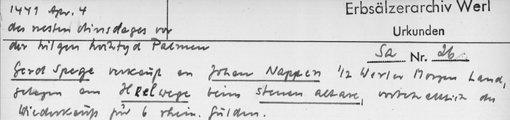 1441 Apr. 4
des nesten dinsdages vor
der hilgen hochtyd Paeschen
Erbsälzerarchiv Werl
Urkunden
Sa Nr. 26
Gerd Spege verkauft an Johan Nappen 1/2 Werler Morgen Land,
gelegen am Helwege beim stenen altare, vorbehaltlich des
Wiederkaufs für 6 rhein. Gulden.